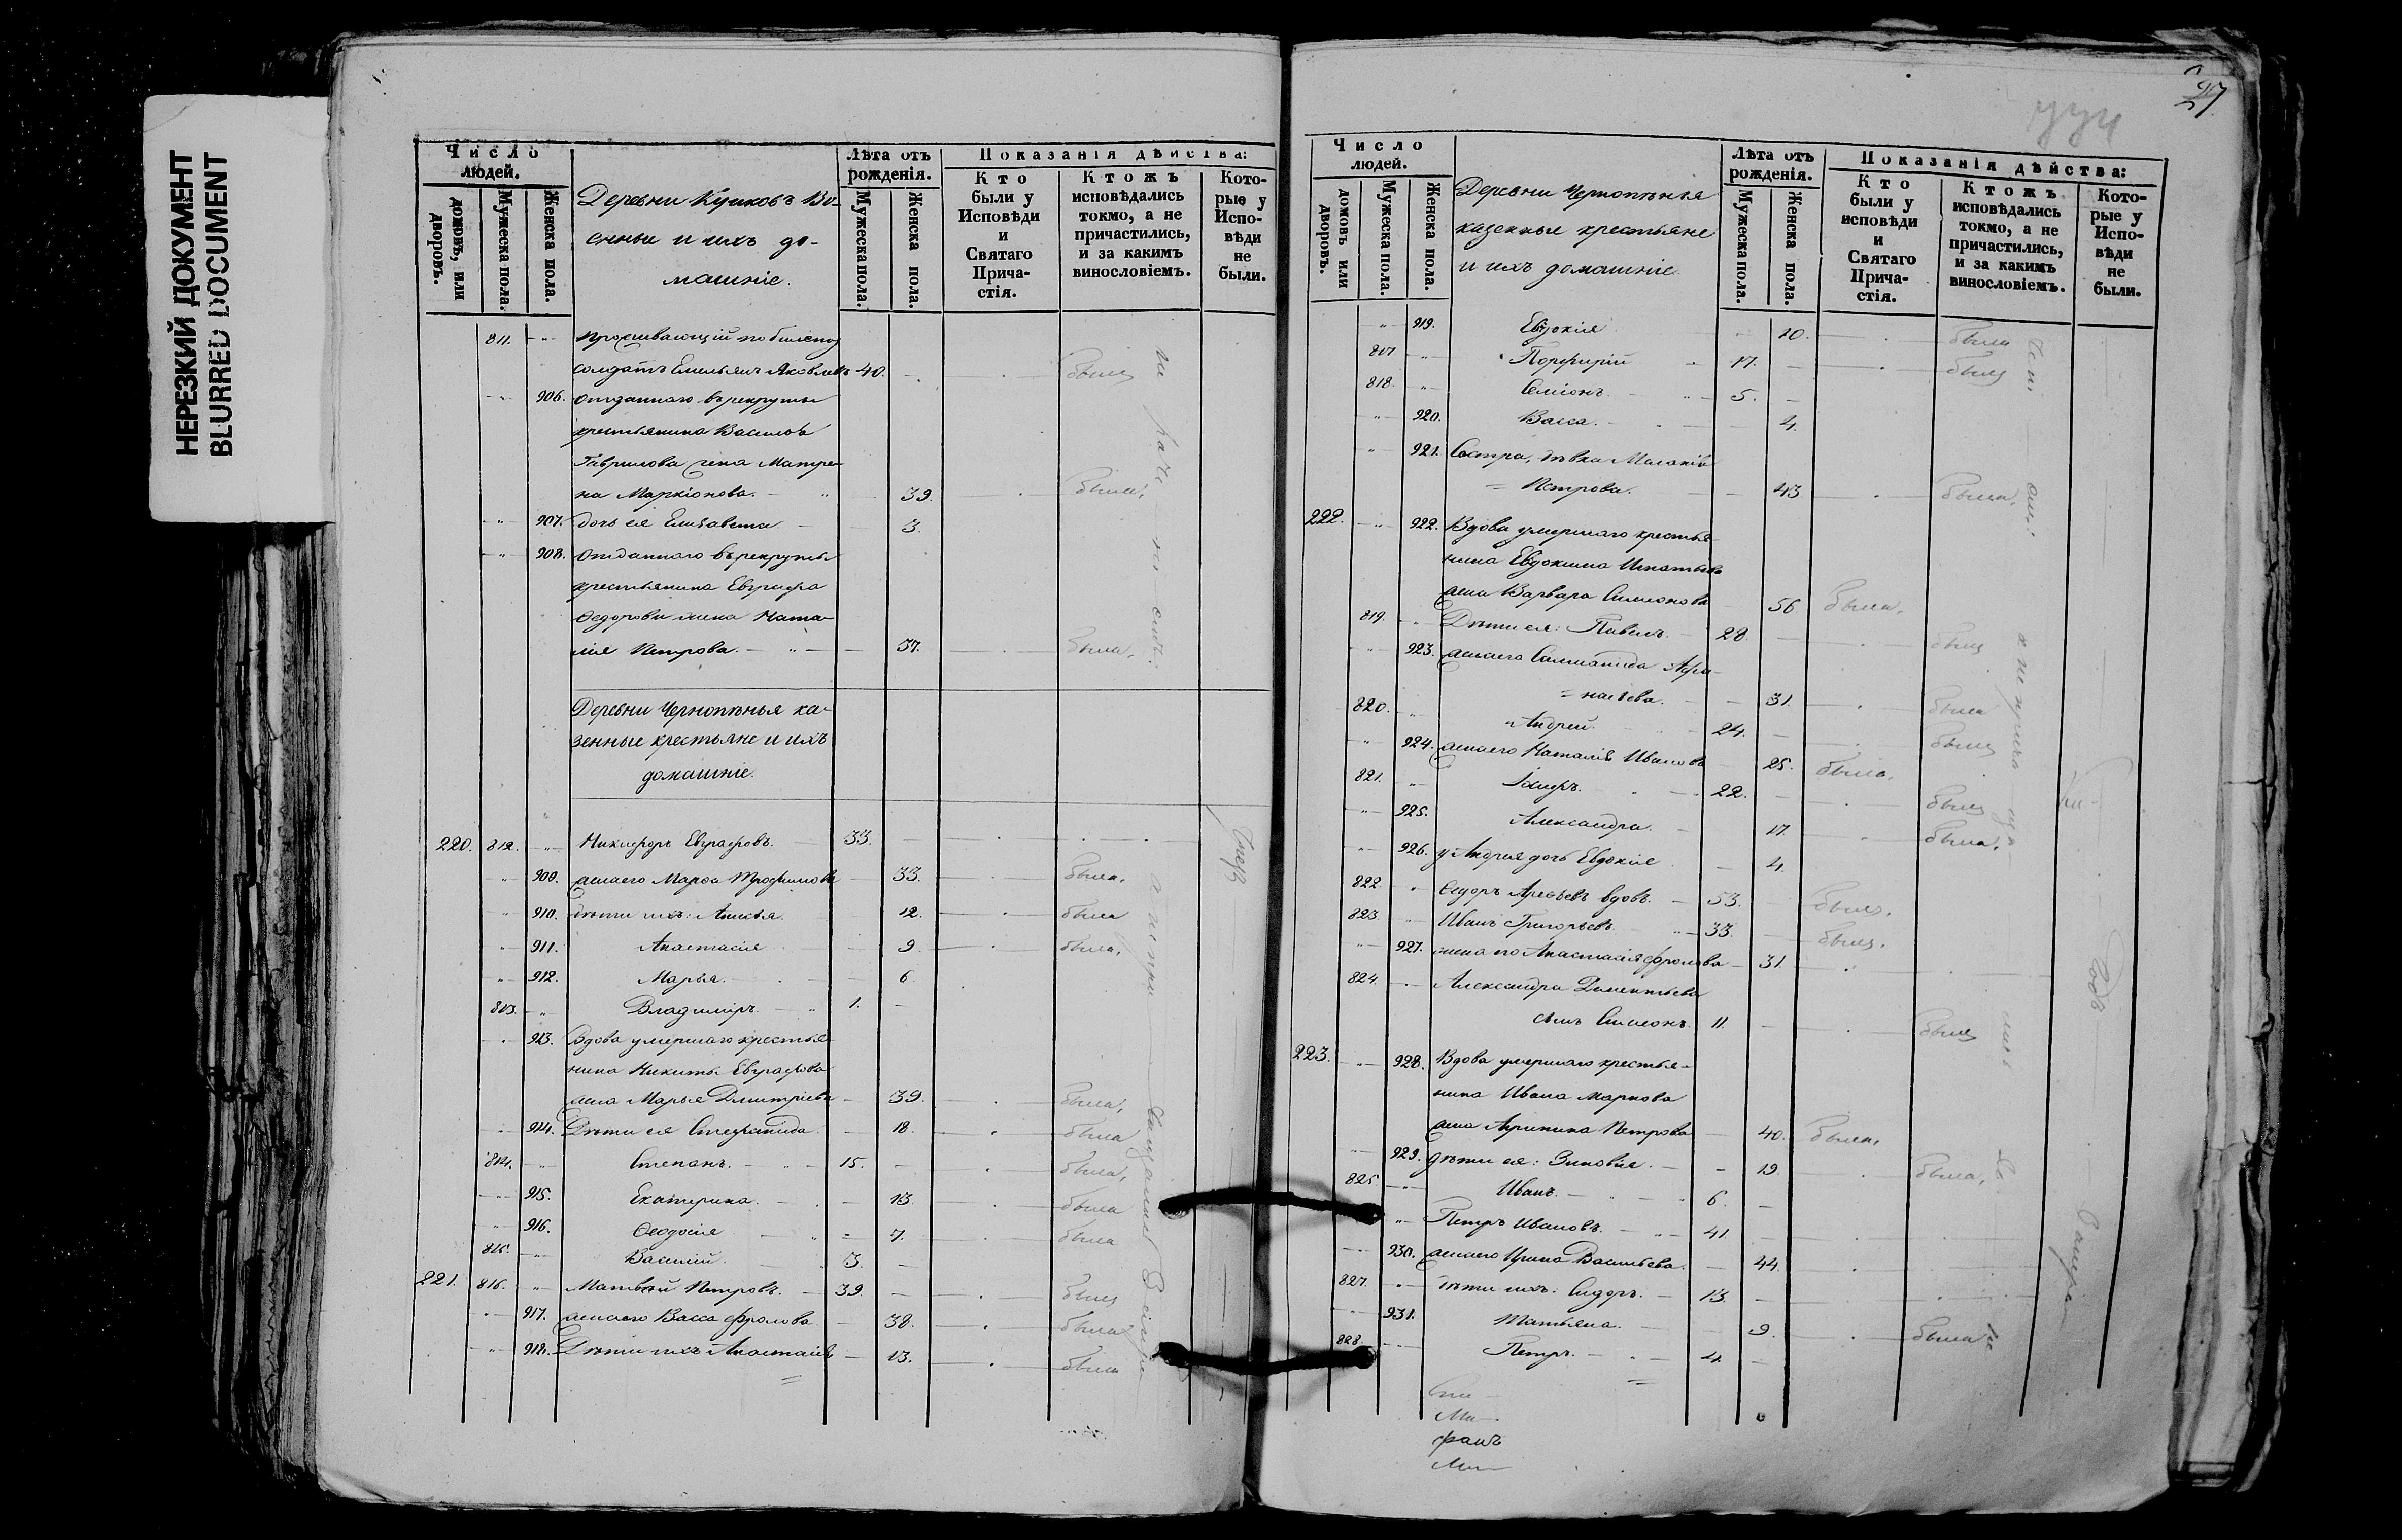 НЕРЕЗКИЙ ДОКУМЕНТ
BLURRED DOCUMENT
Число людей.
домовъ, или дворовъ.
Мужеска пола.
Женска пола.
Деревни Куиковъ Во-
енные и ихъ до-
машніе.
Лѣта отъ рожденія.
Мужеска пола.
Женска пола.
Показанія дѣйства:
Кто были у Исповѣди и Святаго Прича-стія.
Ктожъ исповѣдались токмо, а не причастились, и за какимъ винословіемъ.
Кото-рые у Испо-вѣди не были.
811. Проживающій по билету
солдатъ Емельянъ Яковлевъ 40. былъ
906. Отданнаго въ рекруты
крестьянина Василья
Гаврилова жена Матре-
на Маркіонова. 39. была,
907. дочь ея Елизавета 3.
908. Отданнаго въ рекруты
крестьянина Евграфа
Ѳедорова жена Ната-
лія Петрова. 37. была,
Деревни Чернопѣнья ка-
зенные крестьяне и ихъ
домашніе.
220. 812. Никифоръ Евграфовъ. 33.
909. жена его Марѳа Трофимова 33. была,
910. дѣти ихъ: Анисья. 12. была
911. Анастасія 9. была,
912. Марья. 6.
813. Владиміръ. 1.
913. Вдова умершаго крестья-
нина Никиты Евграфова
жена Марья Дмитріева 39. была,
914. Дѣти ея Стефанида 18. была
814. Степанъ. 15. была,
915. Екатерина. 13. была
916. Ѳеодосія 7. была
815. Василій. 3.
221. 816. Матвѣй Петровъ. 39. былъ
917. жена его Васса Фролова 38. была
918. Дѣти ихъ Анастасія 13. была
27
Число людей.
домовъ или дворовъ.
Мужеска пола.
Женска пола.
Деревни Чернопѣнья
казенные крестьяне
и ихъ домашніе.
Лѣта отъ рожденія.
Мужеска пола.
Женска пола.
Показанія дѣйства:
Кто были у исповѣди и Святаго Прича-стія.
Ктожъ исповѣдались токмо, а не причастились, и за какимъ винословіемъ.
Кото-рые у Испо-вѣди не были.
919. Евдокія 20. была
817 Порфирій 17. былъ
818. Семіонъ. 5.
920. Васса. 4.
921. Сестра, дѣвка Маланія
Петрова. 43. была,
222. 922. Вдова умершаго крестья-
нина Евдокима Игнатьева
жена Варвара Симионова 56 была,
819. Дѣти ея: Павелъ. 28. былъ
923. жена его Соломанида Афа-
насьева. 31. была
820. Андрей. 24. былъ
924. жена его Наталія Иванова 25. была,
821. 22. былъ
925. Александра. 17. была,
926. у Андрея дочь Евдокія 4.
822. Ѳедоръ Арефьевъ вдовъ. 53. былъ,
823. Иванъ Григорьевъ 33. былъ,
927. жена его Анастасія Фролова 31.
824. Александра Даментьева
сынъ Симеонъ. 11. былъ
223. 928. Вдова умершаго крестья-
нина Ивана Маркова
жена Агрипина Петрова 40. была,
929. дѣти ея: Зиновія. 19. была,
825. Иванъ. 6.
Петръ Ивановъ. 41
930. жена его Ирина Васильева. 44.
827. дѣти ихъ: Сидоръ. 13.
931. Татьяна. 9. была
828. Петръ. 4.